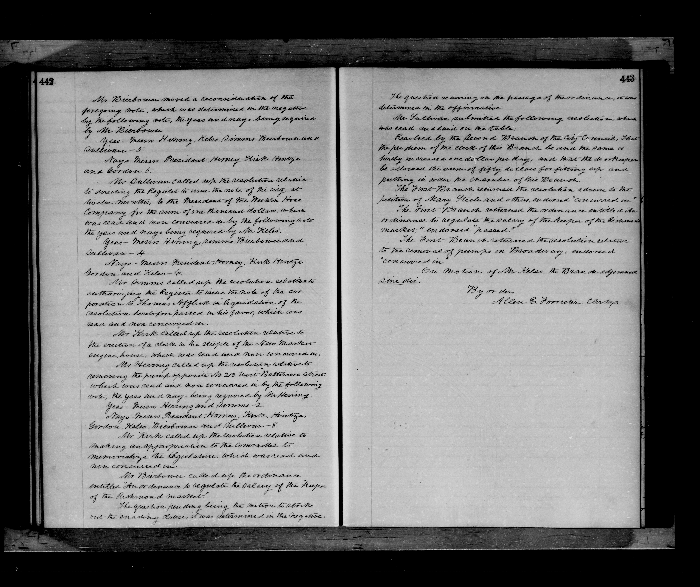 442
Mr Bierbower moved a reconsideration of the
foregoing vote, which was determined in the negative
by the following vote, the yeas and nays being required
by Mr Bierbower
Yeas - Messrs Herring, Keler, Simms Bierbower and
Sullivan - 5
Nays Messrs President, Harvey, Kirk, Hintze
and Gordon 5.
Mr Sullivan called up the resolution relative
to directing the Register to issue the note of the city, at
months, to the President of the Mechl. Hose
Company for the sum of one thousand dollars, which
was read and non concurred in by the following vote
the yeas and nays being required by Mr Keler.
Yeas - Messrs Herring, Simms Bierbower and
Sullivan - 4
Nays - Messrs President Harvey, Kirk Hintze
Gordon and Keler - 6
Mr Simms called up the resolution relative to
authorizing the Register to issue the note of the cor-
poration to Thomas Afflick in liquidation of the
resolution heretofore passed in his favor, which was
read and non concurred in.
Mr Kirk called up the resolution relative to
the erection of a clock in the steeple of the New Market
engine house, which was read and non concurred in.
Mr Herring called up the resolution relative to
removing the pump opposite No 212 West Baltimore Street
which was read and non concurred in by the following
vote, the yeas and nays being required by Mr Herring
Yeas - Messrs Herring and Simms - 2
Nays Messrs President, Harvey, Kirk, Hintze,
Gordon, Keler Bierbower and Sullivan - 8
Mr Kirk called up the resolution relative to
making an appropriation to the comrades to
memorialize the Legislature, which was read and
non concurred in.
Mr Bierbower called up the ordinance
entitled "An ordinance to regulate the salary of the Keeper
of the Richmond market."
The question pending being the motion to strike
out the enacting clause, it was determined in the negative.
443
The question recurring on the passage of the ordinance, it was
determined in the affirmative
Mr Sullivan submitted the following resolution which
was read and laid on the table.
Resolved by the Second Branch of the City Council, That
the per diem of the clerk of this Branch be and the same is
hereby increased one dollar per day, and that the doorkeeper
be allowed the sum of fifty dollars for fitting up and
putting in order the chamber of this Branch.
The First Branch returned the resolution adverse to the
petition of Mary Fleck and others, endorsed "concurred in"
The First Branch returned the ordinance entitled "An
ordinance to regulate the salary of the Keeper of the Richmond
market," endorsed "passed."
The First Branch returned the resolution relative
to the removal of pumps in Broadway, endorsed
"concurred in"
On Motion of Mr Keler the Branch adjourned
sine die.
By order
Allen E. Forrester Clerk